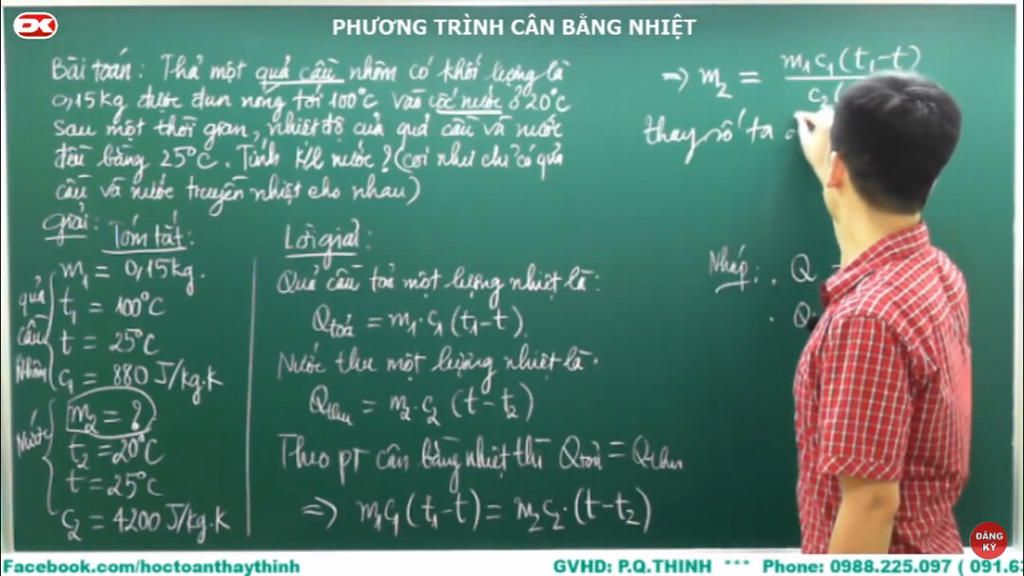 PHƯƠNG TRÌNH CÂN BẰNG NHIỆT
Bài toán: Thả một quả cầu nhôm có khối lượng là
0,15kg được đun nóng tới 100°C vào cốc nước ở 20°C
Sau một thời gian, nhiệt độ của quả cầu và nước
đều bằng 25°C. Tính K/l nước? (coi như chỉ có quả
cầu và nước truyền nhiệt cho nhau)
giải:
Tóm tắt:
quả cầu nhôm
m₁ = 0,15kg.
t₁ = 100°C
t = 25°C
c₁ = 880 J/kg.k
Nước
m₂ = ?
t₂ = 20°C
t = 25°C
c₂ = 4200 J/kg.k
Lời giải:
Quả cầu toả một lượng nhiệt là:
Qtoả = m₁.c₁(t₁-t)
Nước thu một lượng nhiệt là.
Qthu = m₂.c₂ (t-t₂)
Theo PT cân bằng nhiệt thì Qtoả = Qthu
=> m₁c₁(t₁-t) = m₂c₂.(t-t₂)
=> m₂ = m₁c₁(t₁-t)
c₂(
thay số ta
Nháp: . Q
. Q
ĐĂNG KÝ
Facebook.com/hoctoanthaythinh
GVHD: P.Q.THINH *** Phone: 0988.225.097 ( 091.63